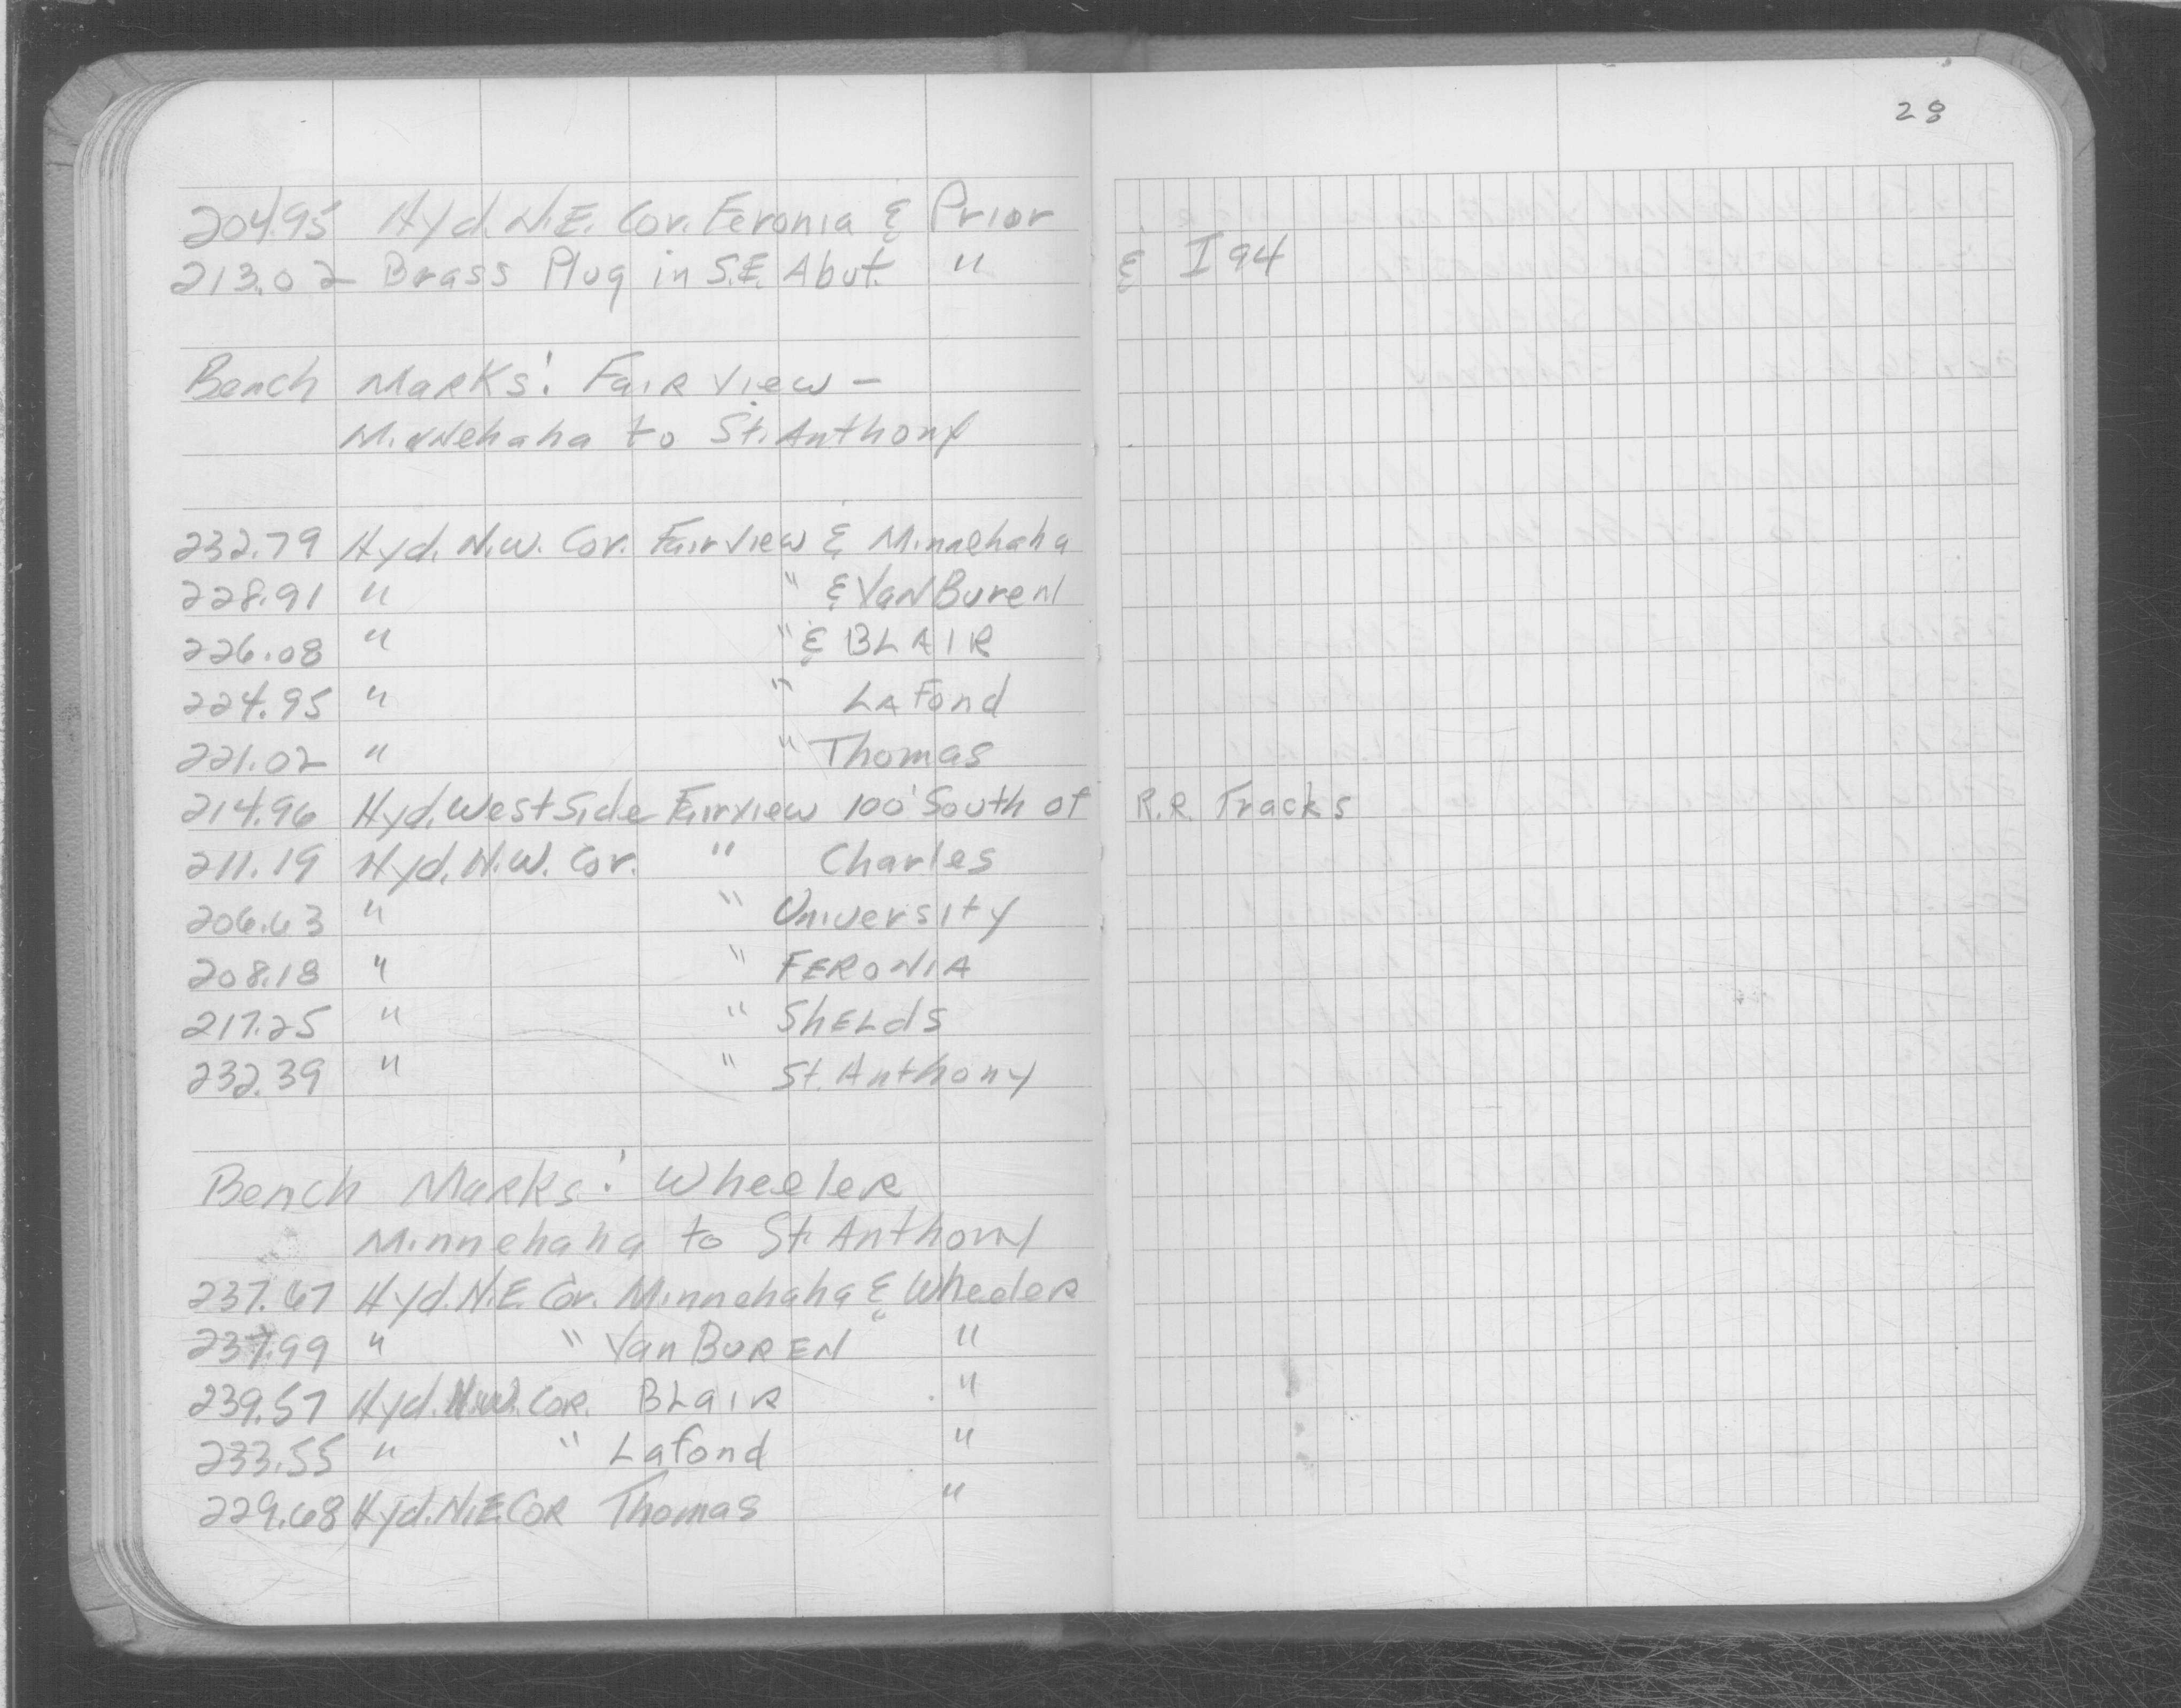 28
204.95 Hyd. N.E. Cor. Feronia & Prior
213.02 Brass Plug in S.E. Abut. " & I 94
Bench Marks: Fairview -
Minnehaha to St. Anthony
232.79 Hyd. N.W. Cor. Fairview & Minnehaha
228.91 " " & Van Buren
226.08 " " & BLAIR
224.95 " " LaFond
221.02 " " Thomas
214.96 Hyd. West Side Fairview 100' South of R.R. Tracks
211.19 Hyd. N.W. Cor. " Charles
206.63 " " University
208.18 " " FERONIA
217.25 " " SheLds
232.39 " " St. Anthony
Bench Marks: Wheeler
Minnehaha to St. Anthony
237.67 Hyd. N.E. Cor. Minnehaha & Wheeler
237.99 " " Van BUREN "
239.57 Hyd. N.W. Cor. BLair "
233.55 " " Lafond "
229.68 Hyd. N.E. Cor Thomas "